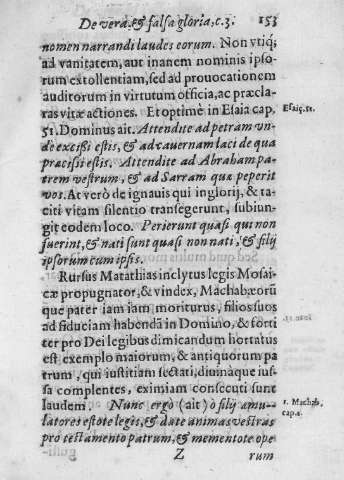 De vera, & falsa gloria, c. 3. 153
nomen narrandi laudes eorum. Non vtiq;
ad vanitatem, aut inanem nominis ipso-
rum extollentiam, sed ad prouocationem
auditorum in virtutum officia, ac præcla-
ras vitæ actiones. Et optimè in Esaia cap.
Esaiæ. 51.
51. Dominus ait. Attendite ad petram vn-
de excißi estis, & ad cauernam laci de qua
præcisi estis. Attendite ad Abraham pa-
trem vestrum, & ad Sarram quæ peperit
vos. At verò de ignauis qui inglorij, & ta-
citi vitam silentio transegerunt, subiun-
git eodem loco. Perierunt quasi qui non
fuerint, & nati sunt quasi non nati, & filij
ipsorum cum ipsis.
Rursus Matathias inclytus legis Mosai-
cæ propugnator, & vindex, Machabæorū
que pater iam iam moriturus, filios suos
ad fiduciam habendā in Domino, & forti
ter pro Dei legibus dimicandum hortatus
est exemplo maiorum, & antiquorum pa
trum, qui iustitiam sectati, diuináque ius-
sa complentes, eximiam consecuti sunt
laudem. Nunc ergò (ait) ò filij æmu-
1. Machab,
cap. 2.
latores estote legis, & date animas vestras
pro testamento patrum, & mementote ope
Z rum